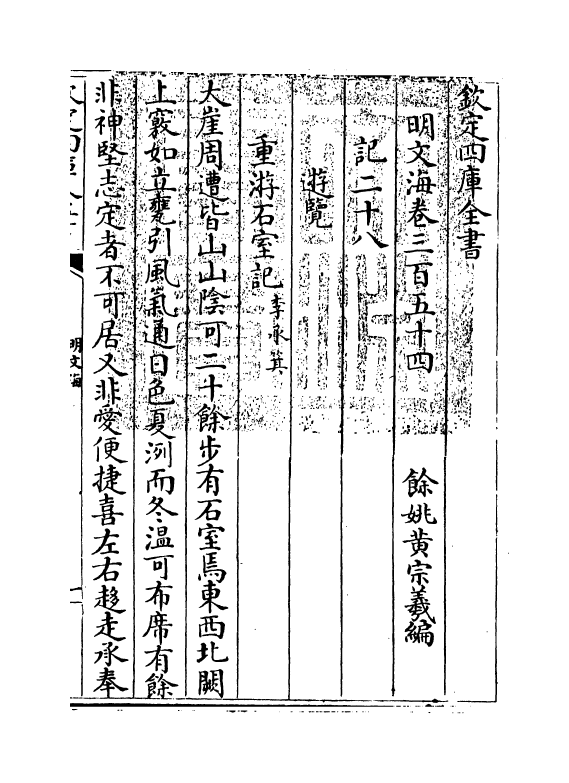 欽定四庫全書
明文海卷三百五十四
餘姚黄宗羲編
記二十八
遊覽
重游石室記李承箕
大崖周遭皆山山陰可二十餘步有石室焉東西北闕
上竅如立甕引風氣通日色夏洌而冬温可布席有餘
非神堅志定者不可居又非愛便捷喜左右趍走承奉
明文海
一